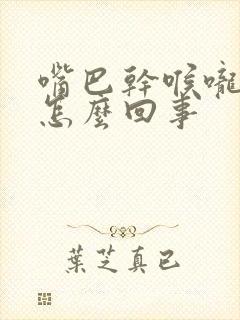 嘴巴幹喉嚨
怎麼回事
葉芝真已